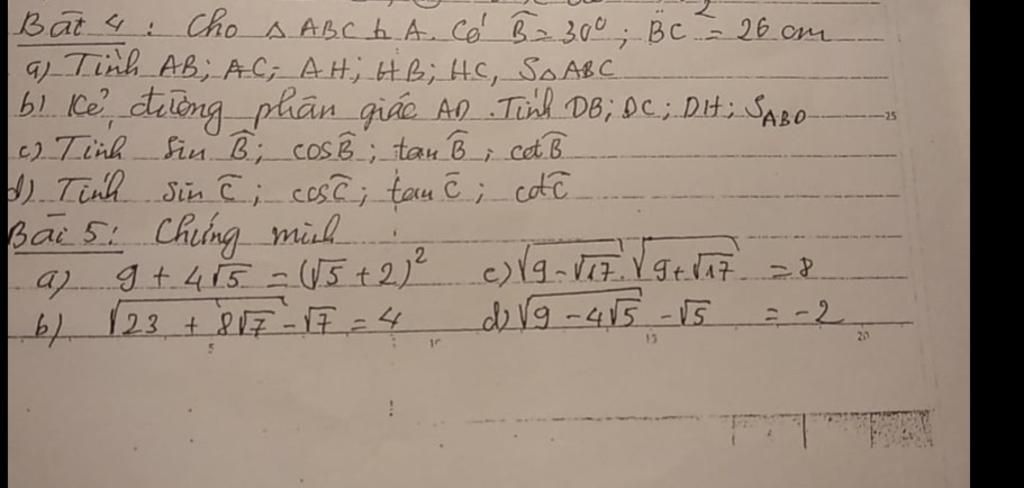 Bài 4 : Cho △ ABC ⊥ A. Có B̂ = 30° ; BC = 26 cm
a) Tính AB; AC; AH; HB; HC, S△ABC
b) Kẻ đường phân giác AD. Tính DB; DC; DH; S_ABD
c) Tính Sin B̂; cosB̂; tan B̂; cotB̂
d) Tính Sin Ĉ; cosĈ; tan Ĉ; cotĈ
Bài 5: Chứng minh
a) 9 + 4√5 = (√5 + 2)² c) √(9 - √17) . √(9 + √17) = 8
b) √(23 + 8√7) - √7 = 4 d) √(9 - 4√5) - √5 = -2
5 10 15 20
25